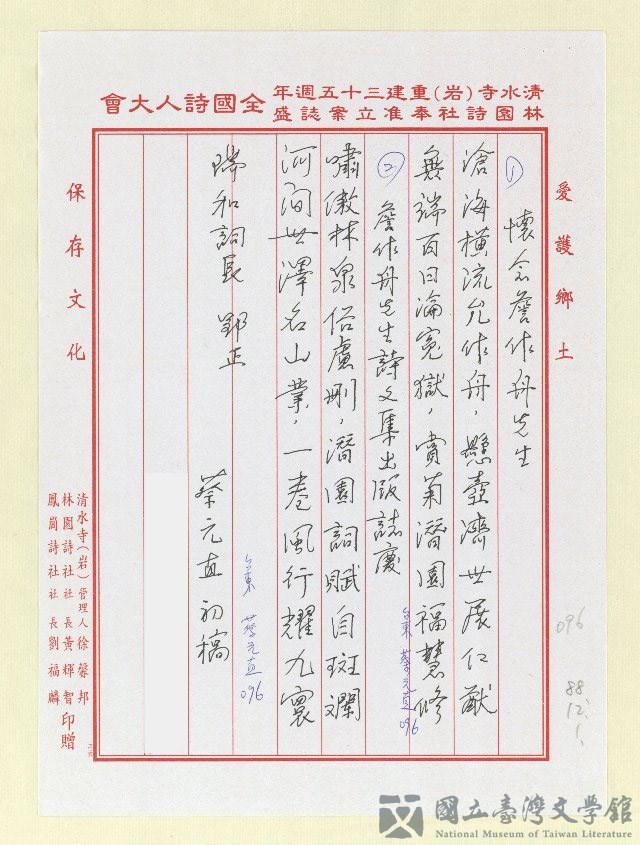 清水寺(岩)重建三十五週年
林園詩社奉准立案誌盛
全國詩人大會
愛護鄉土
① 懷念詹作舟先生
滄海橫流允作舟，懸壺濟世展仁猷
無端百日淪冤獄，賞菊潛園福慧修
台東 蔡元直 096
② 詹作舟先生詩文集出版誌慶
嘯傲林泉俗慮刪，潛園詞賦自斑斕
河洵世澤名山業，一卷風行耀九寰
台東 蔡元直 096
瑞和詞長 郢正
蔡元直初稿
保存文化
清水寺(岩)管理人徐馨邦
林園詩社社長黃輝智
鳳崗詩社社長劉福麟
印贈
096
88.
12.
1.
國立臺灣文學館
National Museum of Taiwan Literature